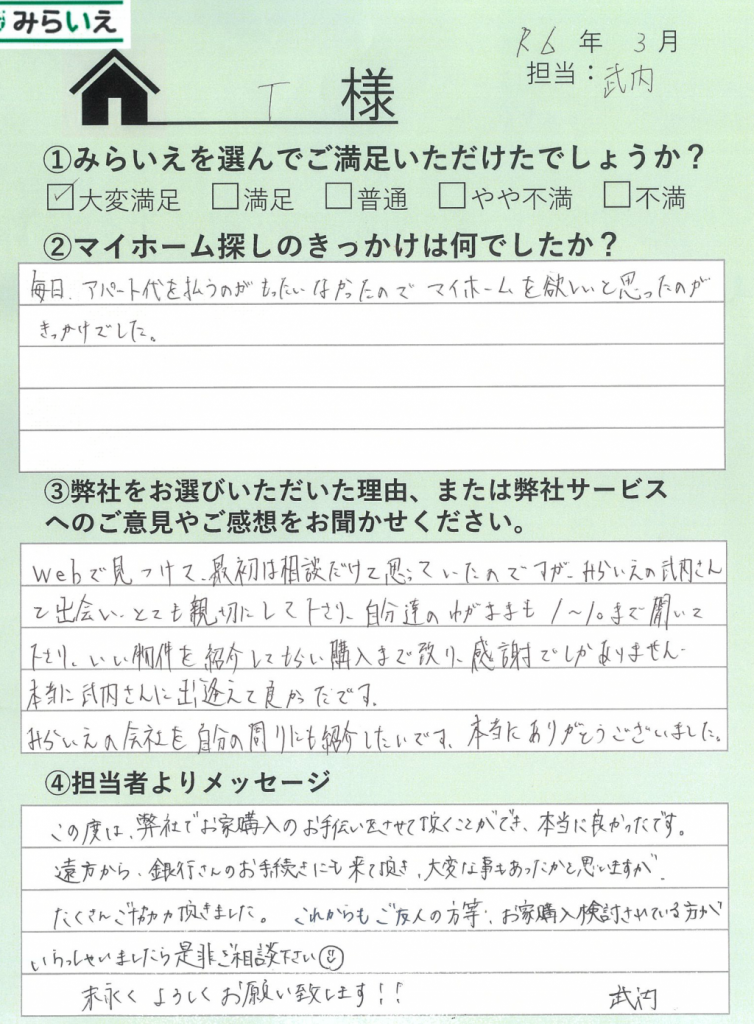 みらいえ
R6 年 3月
担当：武内
T 様
①みらいえを選んでご満足いただけたでしょうか？
☑大変満足 □満足 □普通 □やや不満 □不満
②マイホーム探しのきっかけは何でしたか？
毎日、アパート代を払うのがもったいなかったのでマイホームを欲しいと思ったのが
きっかけでした。
③弊社をお選びいただいた理由、または弊社サービス
へのご意見やご感想をお聞かせください。
Webで見つけて、最初は相談だけて思っていたのですが、みらいえの武内さん
で出会い、とても親切にして下さり、自分達のわがままも1〜10まで聞いて
下さり、いい物件を紹介してもらい購入まで至り、感謝でしかありません。
本当に武内さんに出逢えて良かったです。
みらいえの会社を自分の周りにも紹介したいです、本当にありがとうございました。
④担当者よりメッセージ
この度は、弊社でお家購入のお手伝いをさせて頂くことができ、本当に良かったです。
遠方から、銀行さんのお手続きにも来て頂き、大変な事もあったかと思いますが、
たくさんご協力頂きました。これからもご友人の方等、お家購入検討されている方が
いらっしゃいましたら是非ご相談下さい☺
末永くよろしくお願い致します！！ 武内